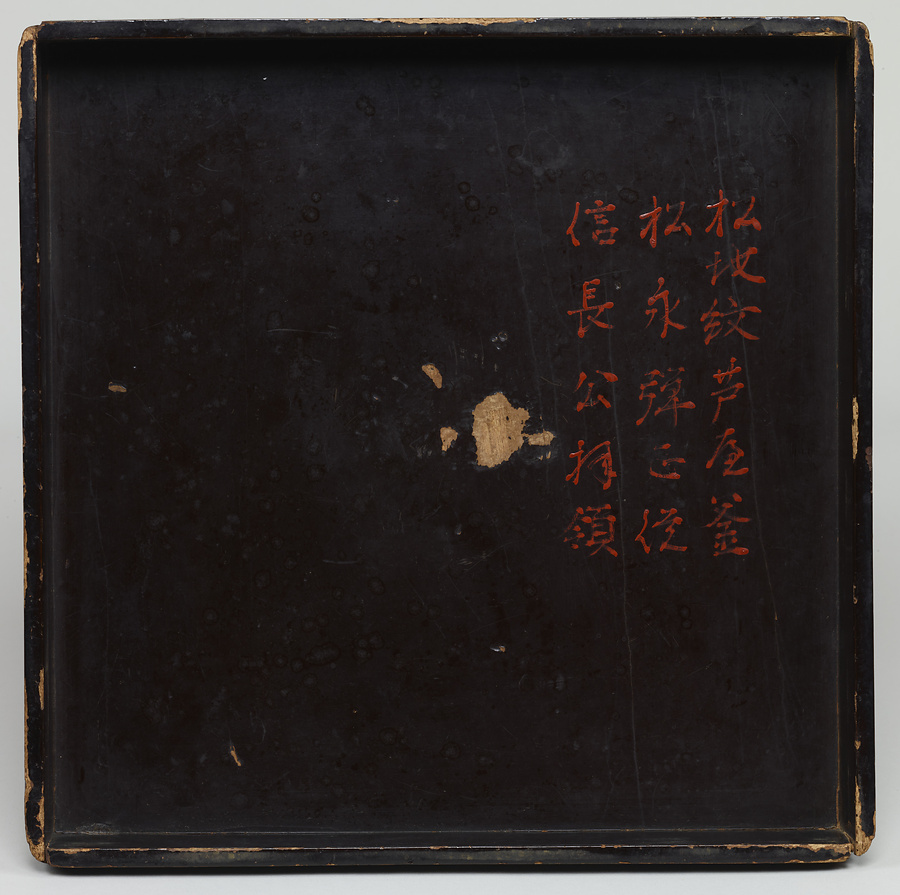 松地紋芦屋釜
松永弾正従
信長公拝領